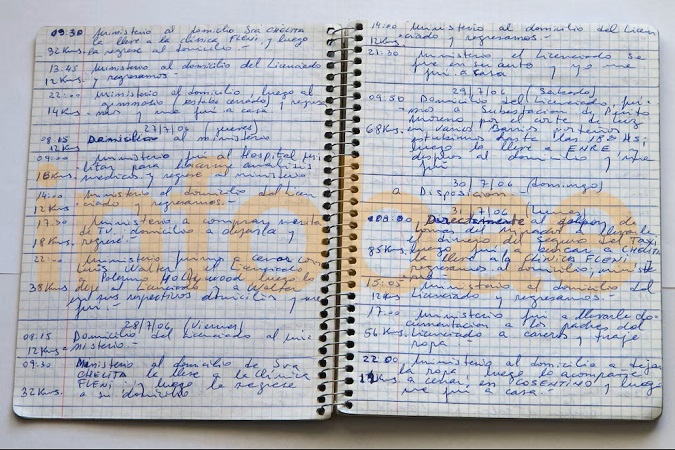 09:30 Ministerio al domicilio Sra CHELITA
la lleve a la clinica FLENI, y luego
32Kms. la regrese al domicilio.-
13:45 Ministerio al domicilio del Licenciado
12Kms. y regresamos.-
22:00 Ministerio al domicilio, luego al
gimnasio (estaba cerrado) y
14Kms. me fui a casa
27/7/06 (jueves)
08:15 Domicilio al ministerio
12Kms
09:00 Ministerio fui al Hospital
para hacerme analisis
16Kms. medicos, y regrese al ministerio
14:00 Ministerio al domicilio del Licen
12Kms. ciado y regresamos.-
17:30 Ministerio a comprar
de TV. domicilio a dejarla y
18Kms. regrese.-
22:00 Ministerio fuimos a cenar con
Luis Walter el Licenciado
Palermo HOLLYWOOD luego lo
38Kms deje al Licenciado y a Walter
en sus respectivos domicilios y me
fui.-
28/7/06 (Viernes)
08:15 Domicilio del Licenciado al mi
12Kms nisterio.-
09:30 Ministerio al domicilio de Sra
CHELITA la lleve a la Clinica
FLENI y luego la regrese
32Kms. a su domicilio
14:00 Ministerio al domicilio del Licen
12Kms. ciado y regresamos.-
21:30 Ministerio el Licenciado se
fue en su auto y yo me
fui a casa
29/7/06 (Sabado)
09:50 Domicilio del Licenciado, fui
mos a Subestacion de Perito
Moreno por el corte de luz
68Kms. en varios Barrios porteños
estuvimos hasta las 18:00 HS.
luego lo lleve a ENRE
despues al domicilio y me
fui
30/7/06 (domingo)
a Disposicion.-
31/7/06 (Lunes)
08:00 Directamente al de
el dinero del Seguro del Taxi
85Kms. luego fui a buscar a CHELITA
la lleve a la CLINICA FLENI
regresamos al domicilio,
15:05 Ministerio al domicilio del
12Kms Licenciado y regresamos.-
17:00 Ministerio fui a llevarle do-
cumentacion a los padres del
56Kms. Licenciado a y traje
ropa
22:00 Ministerio al domicilio a dejar
la ropa luego lo acompañe
Kms a cenar en COSENTINO y luego
me fui a casa.-